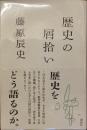 歴史の
屑拾い
藤原辰史
歴史を
どう語るのか。